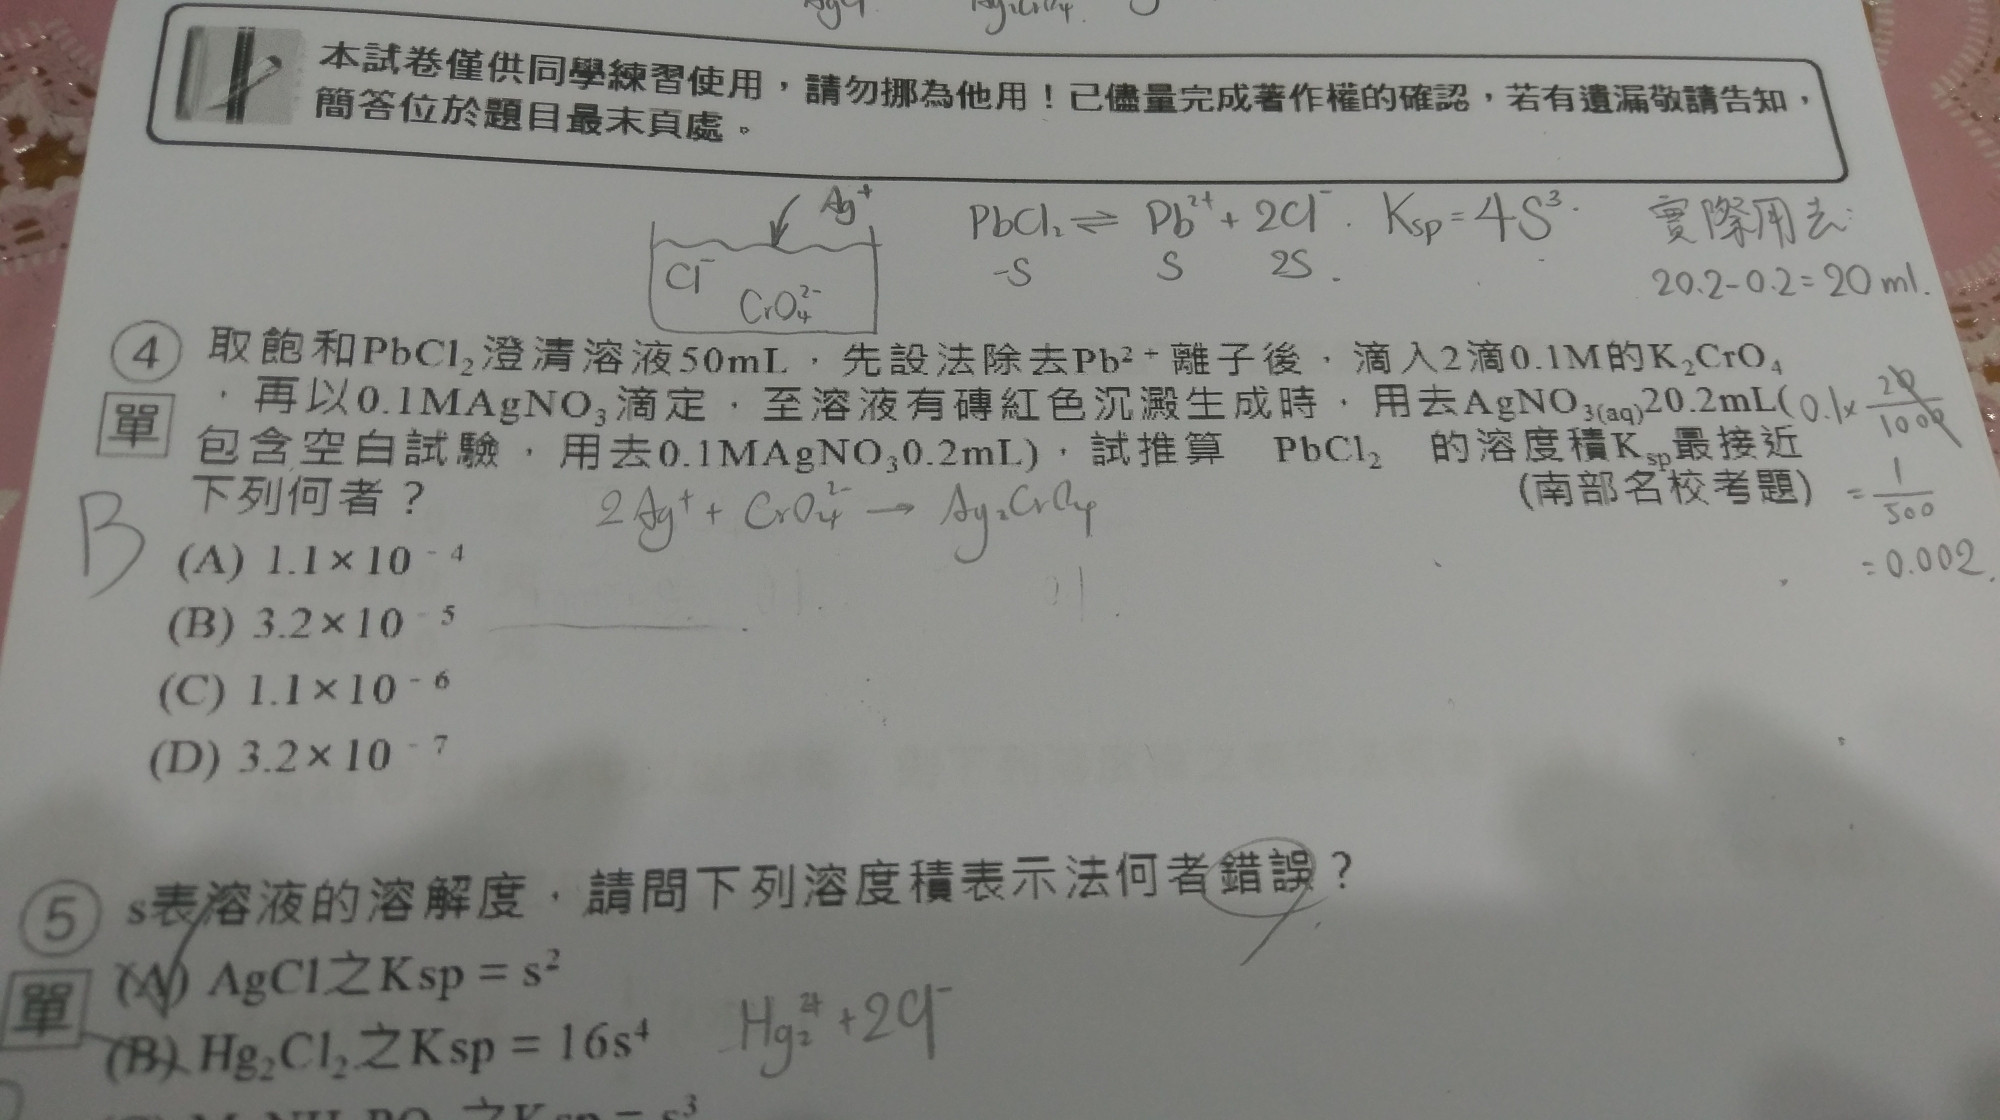 本試卷僅供同學練習使用，請勿挪為他用！已儘量完成著作權的確認，若有遺漏敬請告知，
簡答位於題目最末頁處。
Ag⁺
Cl⁻
CrO₄²⁻
PbCl₂ ⇌ Pb²⁺ + 2Cl⁻. Ksp = 4S³.
-S S 2S.
實際用去:
20.2-0.2=20 ml.
④ 取飽和PbCl₂澄清溶液50mL，先設法除去Pb²⁺離子後，滴入2滴0.1M的K₂CrO₄
單 ，再以0.1MAgNO₃滴定，至溶液有磚紅色沉澱生成時，用去AgNO₃₍aq₎20.2mL(
包含空白試驗，用去0.1MAgNO₃0.2mL)，試推算 PbCl₂ 的溶度積Ksp最接近
下列何者？ (南部名校考題)
0.1× 20/1000
= 1/500
= 0.002.
2Ag⁺ + CrO₄²⁻ → Ag₂CrO₄
B
(A) 1.1×10⁻⁴
(B) 3.2×10⁻⁵
(C) 1.1×10⁻⁶
(D) 3.2×10⁻⁷
⑤ s表溶液的溶解度，請問下列溶度積表示法何者錯誤？
單 (A) AgCl之Ksp = s²
(B) Hg₂Cl₂之Ksp = 16s⁴
Hg₂²⁺ + 2Cl⁻